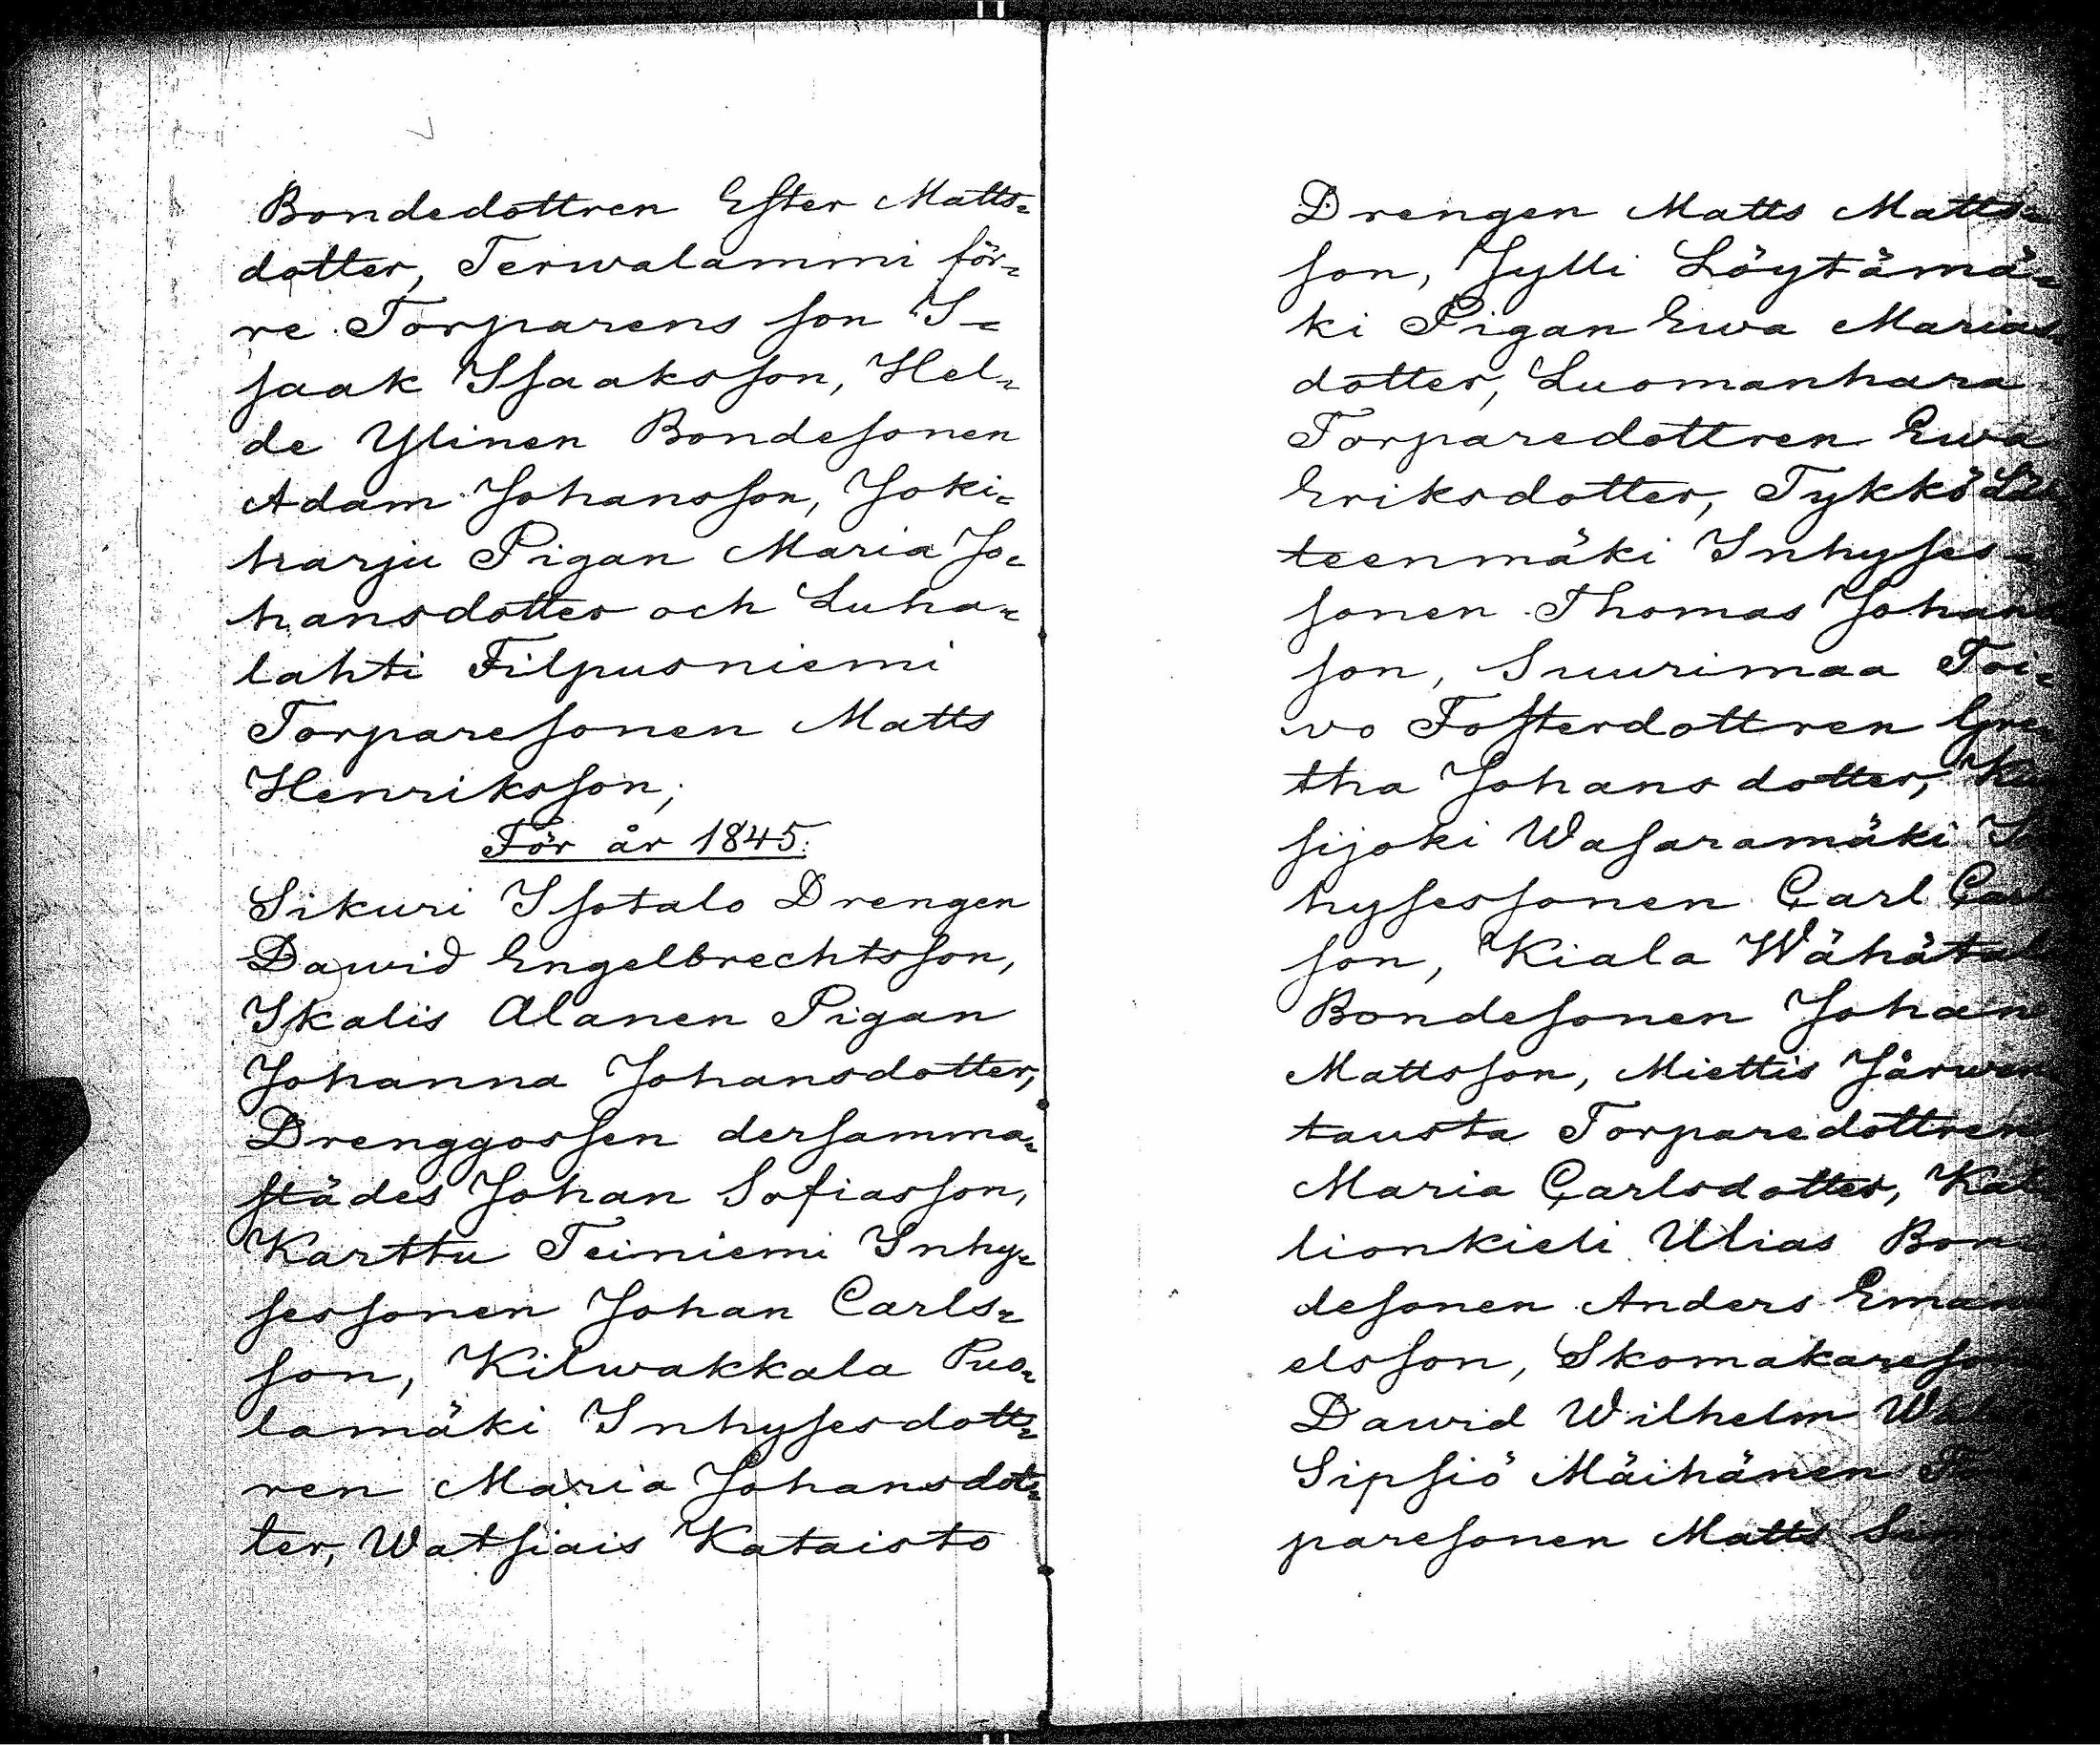 Bondedottren Ester Matts-
dotter, Terwalammi för-
re Torparens son I-
saak Isaaksson, Hel-
de Ylinen Bondesonen
Adam Johansson, Joki-
harju Pigan Maria Jo-
hansdotter och Luha-
lahti Filpusniemi
Torparesonen Matts
Henriksson;
För år 1845.
Sikuri Isotalo Drengen
Dawid Engelbrechtsson,
Ikalis Alanen Pigan
Johanna Johansdotter,
Drenggossen dersamma-
städes Johan Sofiasson,
Karttu Teiniemi Inhy-
sessonen Johan Carls-
son, Kilwakkala Puo-
lamäki Inhysesdott-
ren Maria Johansdot-
ter, Watsiais Kataisto
Drengen Matts Matts-
son, Jylli Löytämä-
ki Pigan Ewa Marias
dotter, Luomanhara
Torparedottren Ewa
Eriksdotter, Tykkö
teenmäki Inhyses-
sonen Thomas Johans
son, Suurimaa Toi-
vo Fosterdottren Gre-
tha Johansdotter,
sijoki Wasaramäki
hysessonen Carl Carl
son, Kiala Wähätalo
Bondesonen Johan
Mattsson, Miettis Järwen
tausta Torparedottren
Maria Carlsdotter,
lionkieli Ulias Bon
desonen Anders Eman
elsson, Skomakareson
Dawid Wilhelm
Sipsiö Mäihänen
paresonen Matts